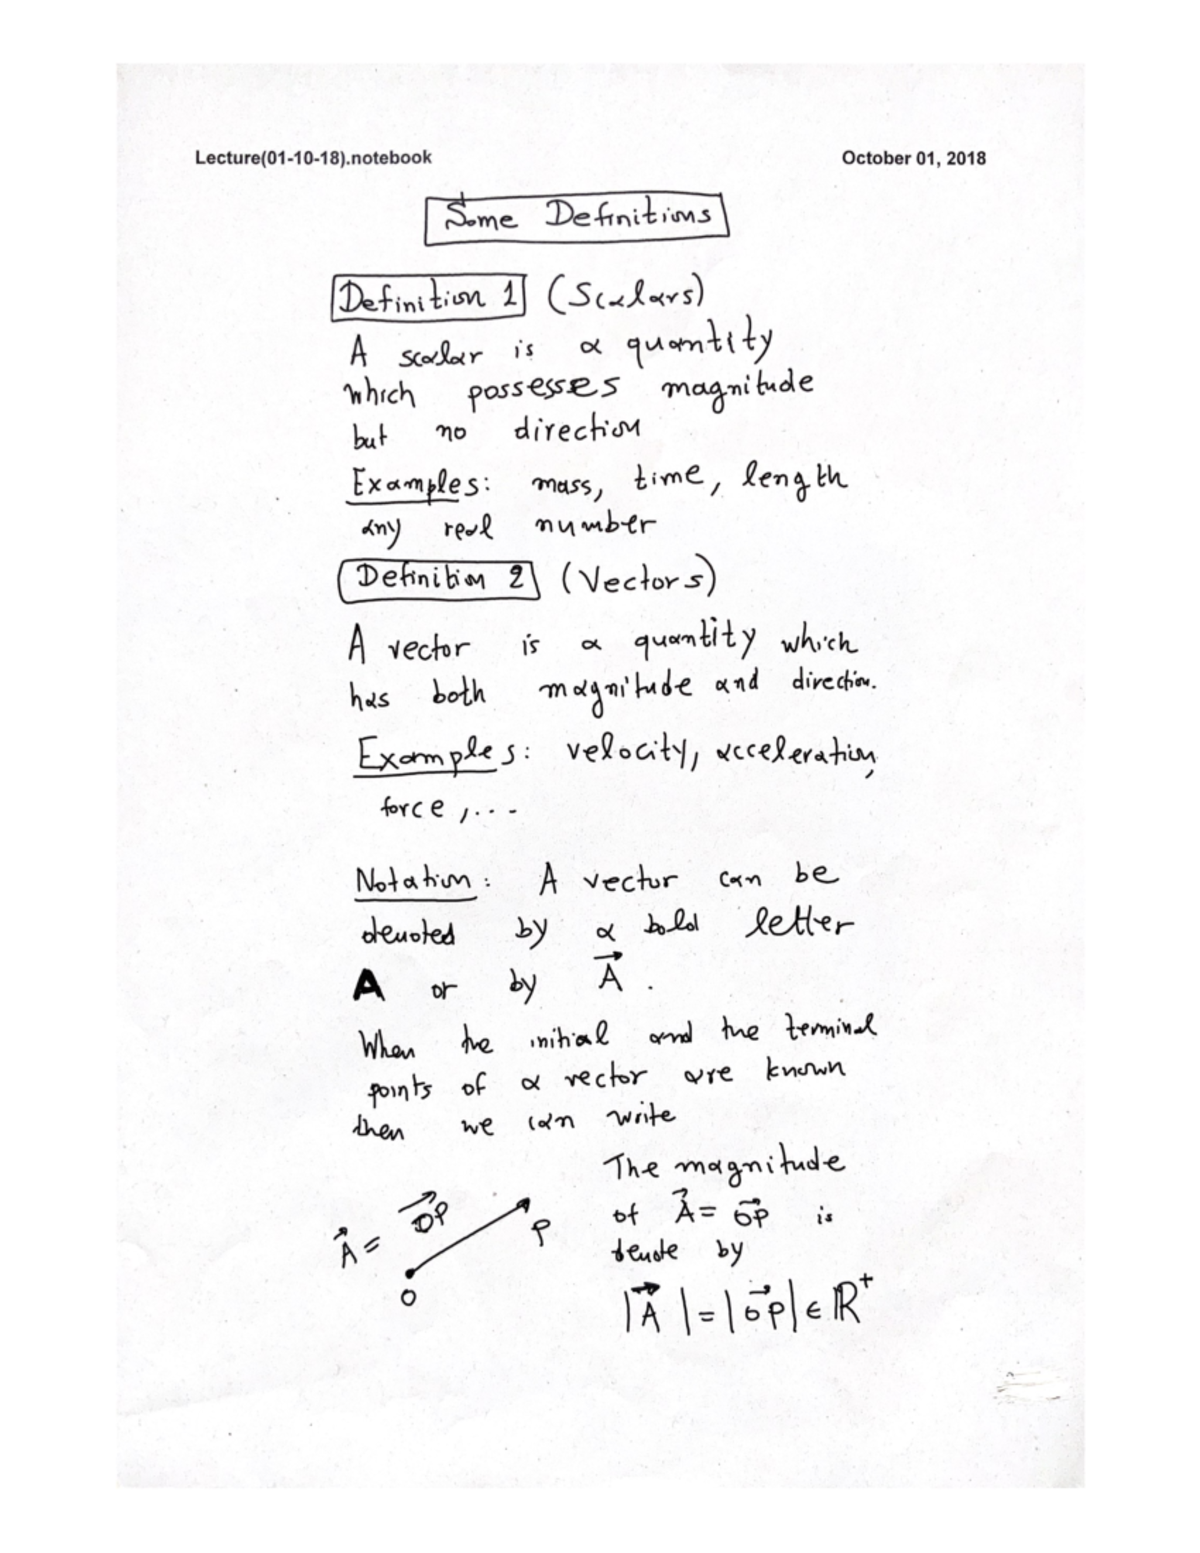 Lecture(01-10-18).notebook October 01, 2018
Some Definitions
Definition 1 (Scalars)
A scalar is a quantity
which possesses magnitude
but no direction
Examples: mass, time, length
any real number
Definition 2 (Vectors)
A vector is a quantity which
has both magnitude and direction.
Examples: velocity, acceleration,
force, ...
Notation: A vector can be
denoted by a bold letter
A or by A⃗ .
When the initial and the terminal
points of a vector are known
then we can write
The magnitude
of A⃗ = OP⃗ is
denote by
|A⃗| = |OP⃗| ∈ ℝ⁺
A⃗ = OP⃗
P
O